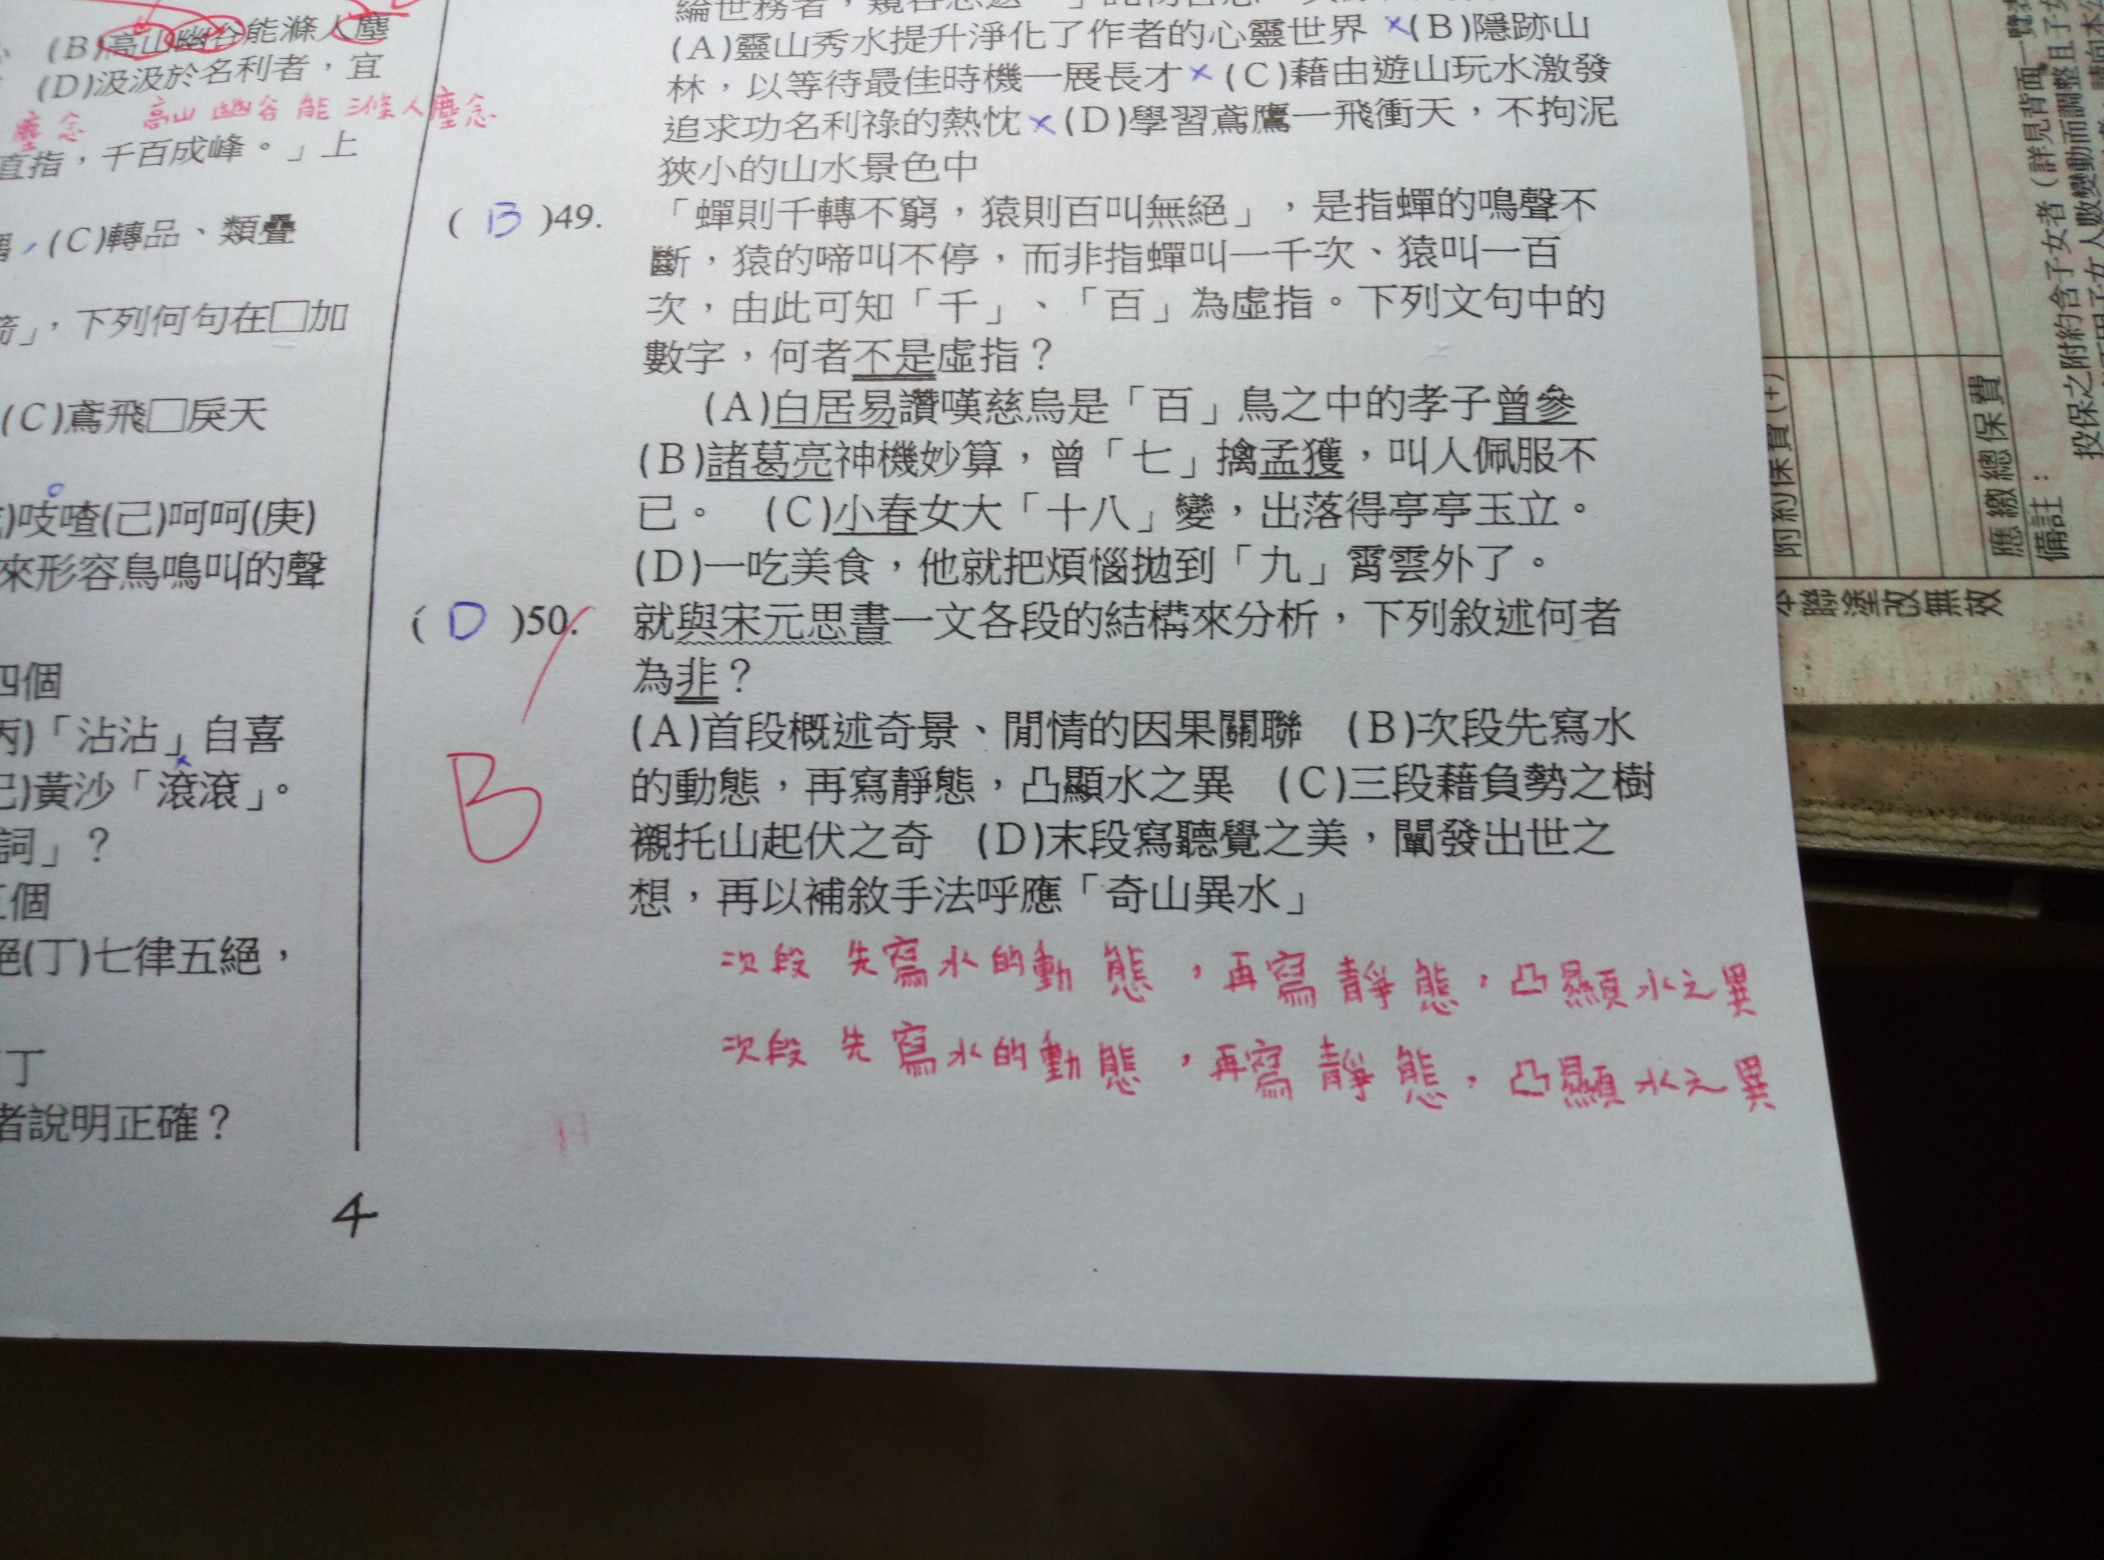 (B)高山幽谷能滌人塵
(D)汲汲於名利者，宜
塵念 高山幽谷能滌人塵念
直指，千百成峰。」上
(C)轉品、類疊
，下列何句在□加
(C)鳶飛□戾天
吱喳(己)呵呵(庚)
來形容鳥鳴叫的聲
四個
丙)「沾沾」自喜
己)黃沙「滾滾」。
詞」？
個
絕(丁)七律五絕，
丁
者說明正確？
4
(A)靈山秀水提升淨化了作者的心靈世界 ×(B)隱跡山
林，以等待最佳時機一展長才×(C)藉由遊山玩水激發
追求功名利祿的熱忱×(D)學習鳶鷹一飛衝天，不拘泥
狹小的山水景色中
( B )49. 「蟬則千轉不窮，猿則百叫無絕」，是指蟬的鳴聲不
斷，猿的啼叫不停，而非指蟬叫一千次、猿叫一百
次，由此可知「千」、「百」為虛指。下列文句中的
數字，何者不是虛指？
(A)白居易讚嘆慈烏是「百」鳥之中的孝子曾參
(B)諸葛亮神機妙算，曾「七」擒孟獲，叫人佩服不
已。 (C)小春女大「十八」變，出落得亭亭玉立。
(D)一吃美食，他就把煩惱拋到「九」霄雲外了。
( D )50. 就與宋元思書一文各段的結構來分析，下列敘述何者
為非？
B
(A)首段概述奇景、閒情的因果關聯 (B)次段先寫水
的動態，再寫靜態，凸顯水之異 (C)三段藉負勢之樹
襯托山起伏之奇 (D)末段寫聽覺之美，闡發出世之
想，再以補敘手法呼應「奇山異水」
次段先寫水的動態，再寫靜態，凸顯水之異
次段先寫水的動態，再寫靜態，凸顯水之異
附約保費(+)
應繳總保費
備註：
投保之附約含子女者(詳見背面一覽
人數變動而調整且子女
本聯塗改無效